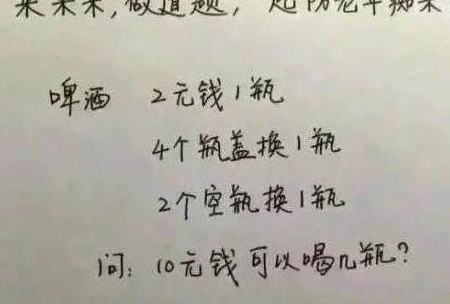 来来来,做道题,一起防老年痴呆
啤酒 2元钱1瓶
4个瓶盖换1瓶
2个空瓶换1瓶
问:10元钱可以喝几瓶?